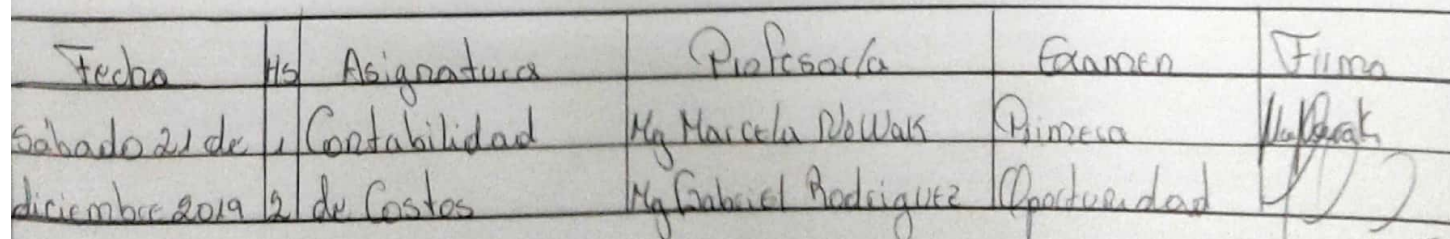 Fecha Hs Asignatura Profesor/a Examen Firma
Sábado 21 de 1 Contabilidad Mg Marcela Nowak Primera
diciembre 2019 2 de Costos Mg Gabriel Rodriguez Oportunidad